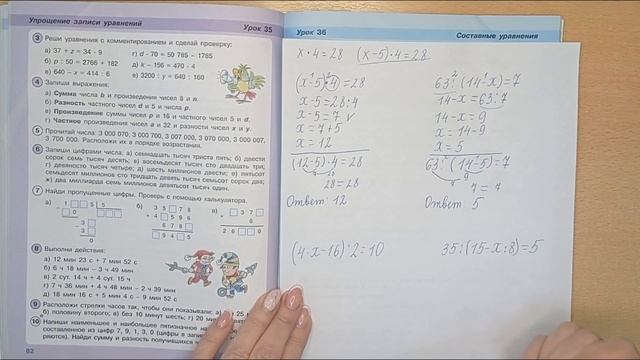 Упрощение записи уравнений Урок 35
3 Реши уравнения с комментированием и сделай проверку:
а) 37 + z = 34 · 9 г) d · 70 = 50 785 – 1785
б) p : 50 = 2766 + 182 д) k – 156 = 470 · 4
в) 640 – x = 414 : 6 е) 3200 : y = 640 : 160
4 Запиши выражения:
а) Сумма числа b и произведения чисел 8 и n.
б) Разность частного чисел d и 5 и числа p.
в) Произведение суммы чисел p и 16 и частного чисел 5 и d.
г) Частное произведения чисел a и 32 и разности чисел x и y.
5 Прочитай числа:
3 700 000. Расположи их в порядке возрастания.
6 Запиши цифрами числа: а) семнадцать тысяч триста пять; б) двести
сорок семь тысяч десять; в) восемьдесят тысяч сто двадцать три;
г) девяносто тысяч четыре; д) шесть миллионов двести; е) пятьсот
семьдесят миллионов сто тридцать девять тысяч семьсот сорок два;
ж) два миллиарда семь миллионов девятьсот тысяч один.
7 Найди пропущенные цифры. Проверь с помощью калькулятора.
а) б) в)
8 Выполни действия:
а) 12 мин 23 с + 7 мин 52 с
б) 6 ч 18 мин – 3 ч 49 мин
в) 2 сут. 14 ч + 4 сут. 15 ч
г) 7 ч 36 мин + 4 ч 48 мин – 2 ч 39 мин
д) 18 мин 16 с + 5 мин 4 с – 9 мин 52 с
9 Расположи стрелки часов так, чтобы они показывали: а)
б) половину второго; в) без 10 минут шесть; г) 20 мин
10 Напиши наименьшее и наибольшее пятизначное
составленное из цифр 7, 9, 1, 3, 0 (цифры в
ряются). Найди сумму и разность получившихся
82
Урок 36 Составные уравнения
x · 4 = 28 (x – 5) · 4 = 28
(x – 5) · 4 = 28
x – 5 = 28 : 4
x – 5 = 7
x = 7 + 5
x = 12
(12 – 5) · 4 = 28
28 = 28
Ответ: 12
63 : (14 – x) = 7
14 – x = 63 : 7
14 – x = 9
x = 14 – 9
x = 5
63 : (14 – 5) = 7
7 = 7
Ответ 5
(4 · x – 16) · 2 = 10 35 : (15 – x : 8) = 5